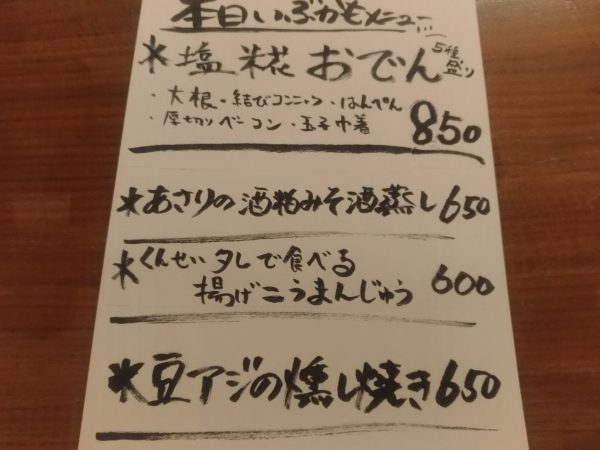 本日いぶかもメニュー
＊塩糀おでん 5種盛り
・大根・結びコンニャク・はんぺん
・厚切りベーコン・玉子巾着 850
＊あさりの酒粕みそ酒蒸し 650
＊くんせいタレで食べる
揚げこうまんじゅう 600
＊豆アジの燻し焼き 650